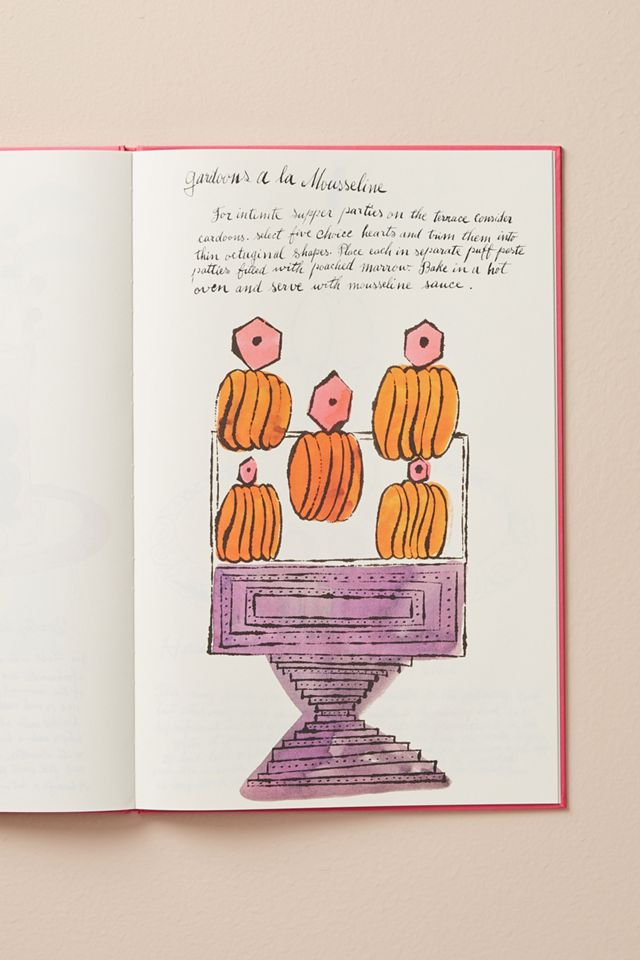 Gardoons a la Mousseline
For intimite supper parties on the terrace consider
cardoons. select five choice hearts and trim them into
thin octaginal shapes. Place each in separate puff paste
patties filled with poached marrow. Bake in a hot
oven and serve with mousseline sauce.